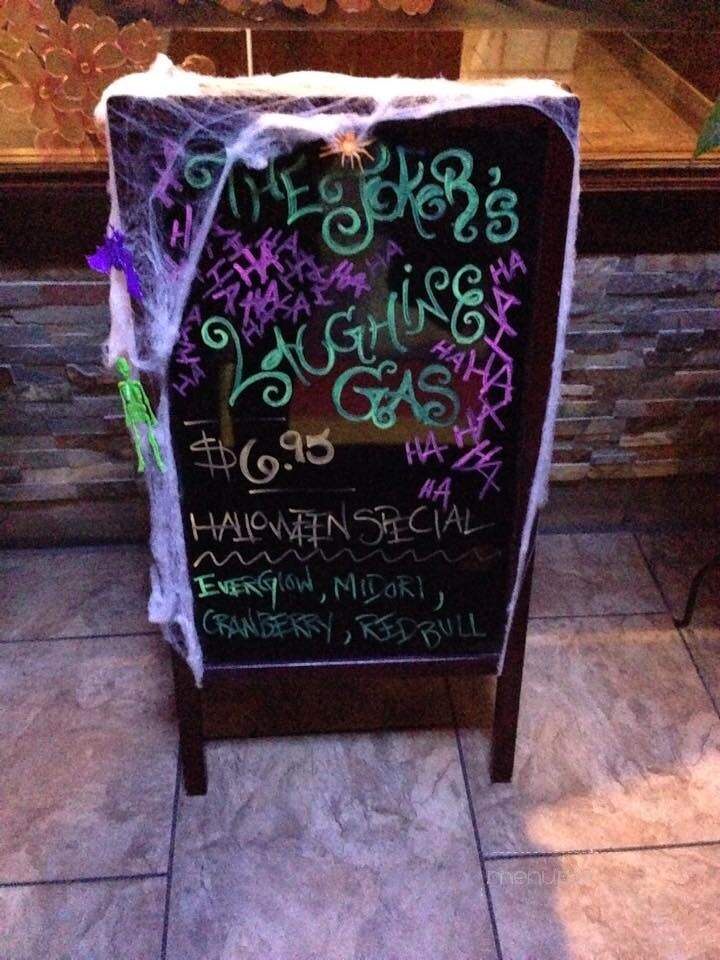 THE JOKER'S
HA HA HA HA HA HA
LAUGHING
GAS
HA HA HA HA HA
$6.95
HALLOWEEN SPECIAL
EVERGLOW, MIDORI,
CRANBERRY, REDBULL